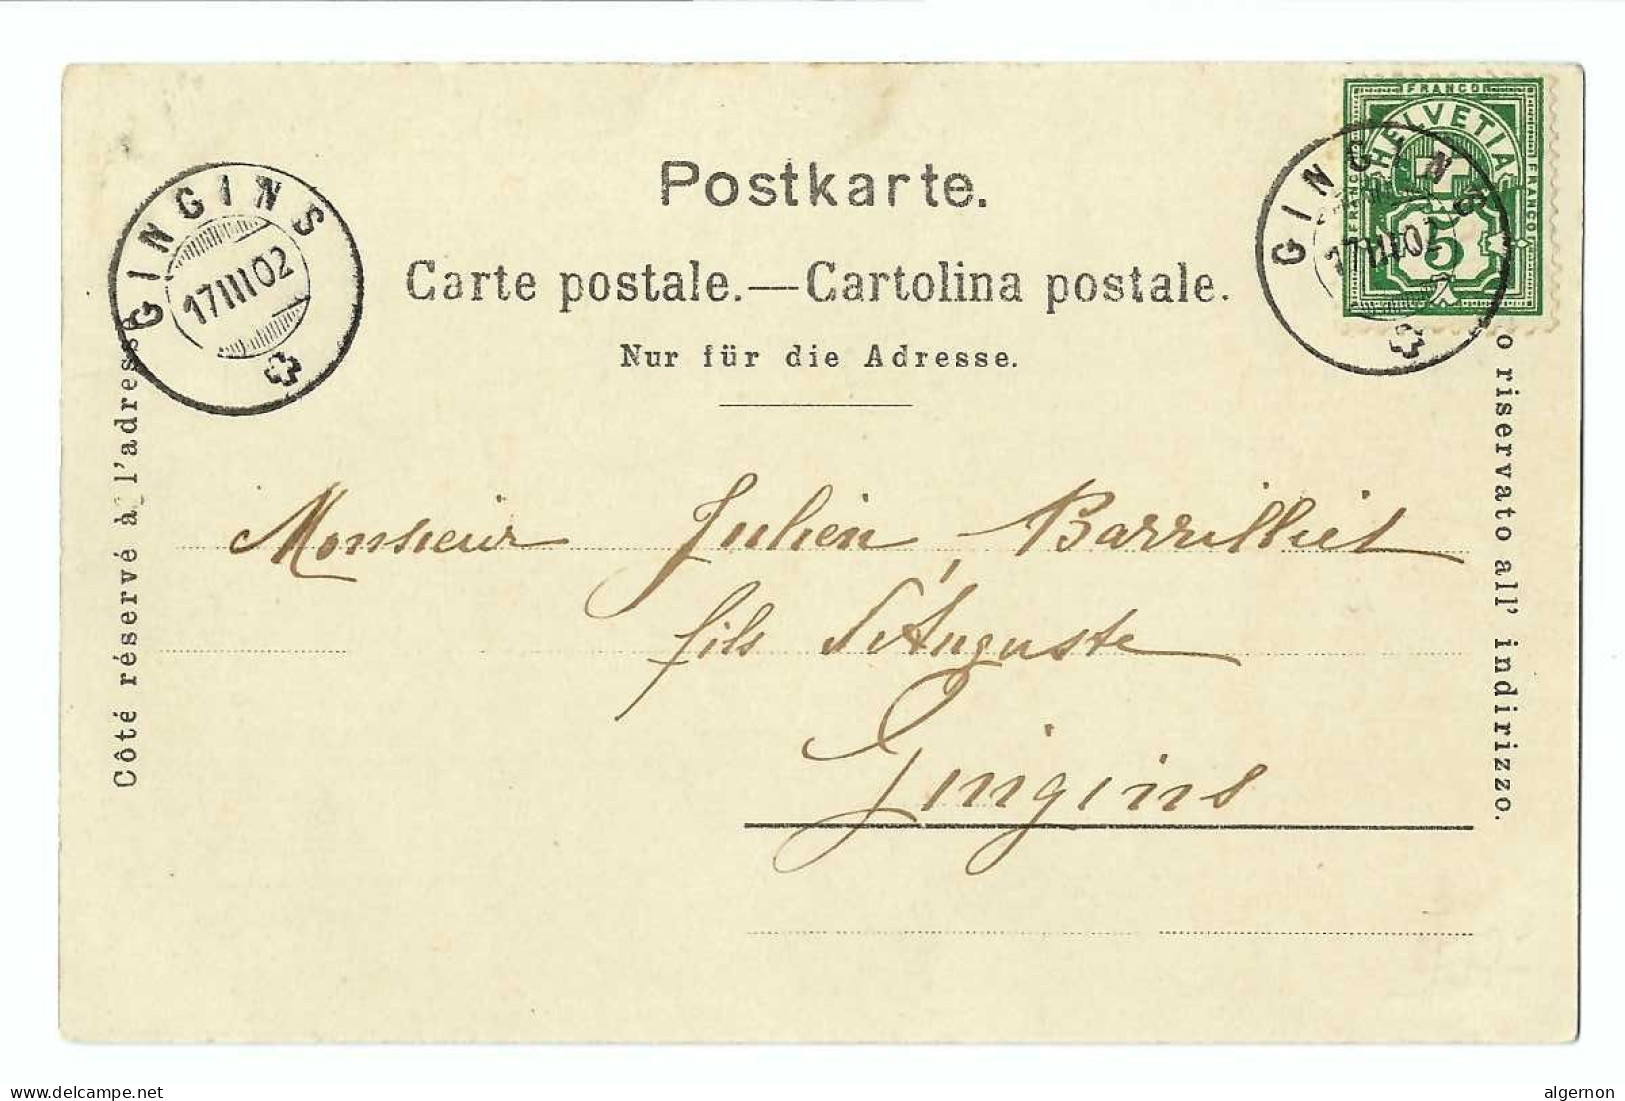 FRANCO
HELVETIA
FRANCO
FRANCO
5
GINGINS
17 III 02
GINGINS
17 III 02
Postkarte.
Carte postale.—Cartolina postale.
Nur für die Adresse.
Côté réservé à l'adresse
o riservato all' indirizzo.
Monsieur Julien Barrilliet
fils d'Auguste
Gingins
delcampe.net
algernon